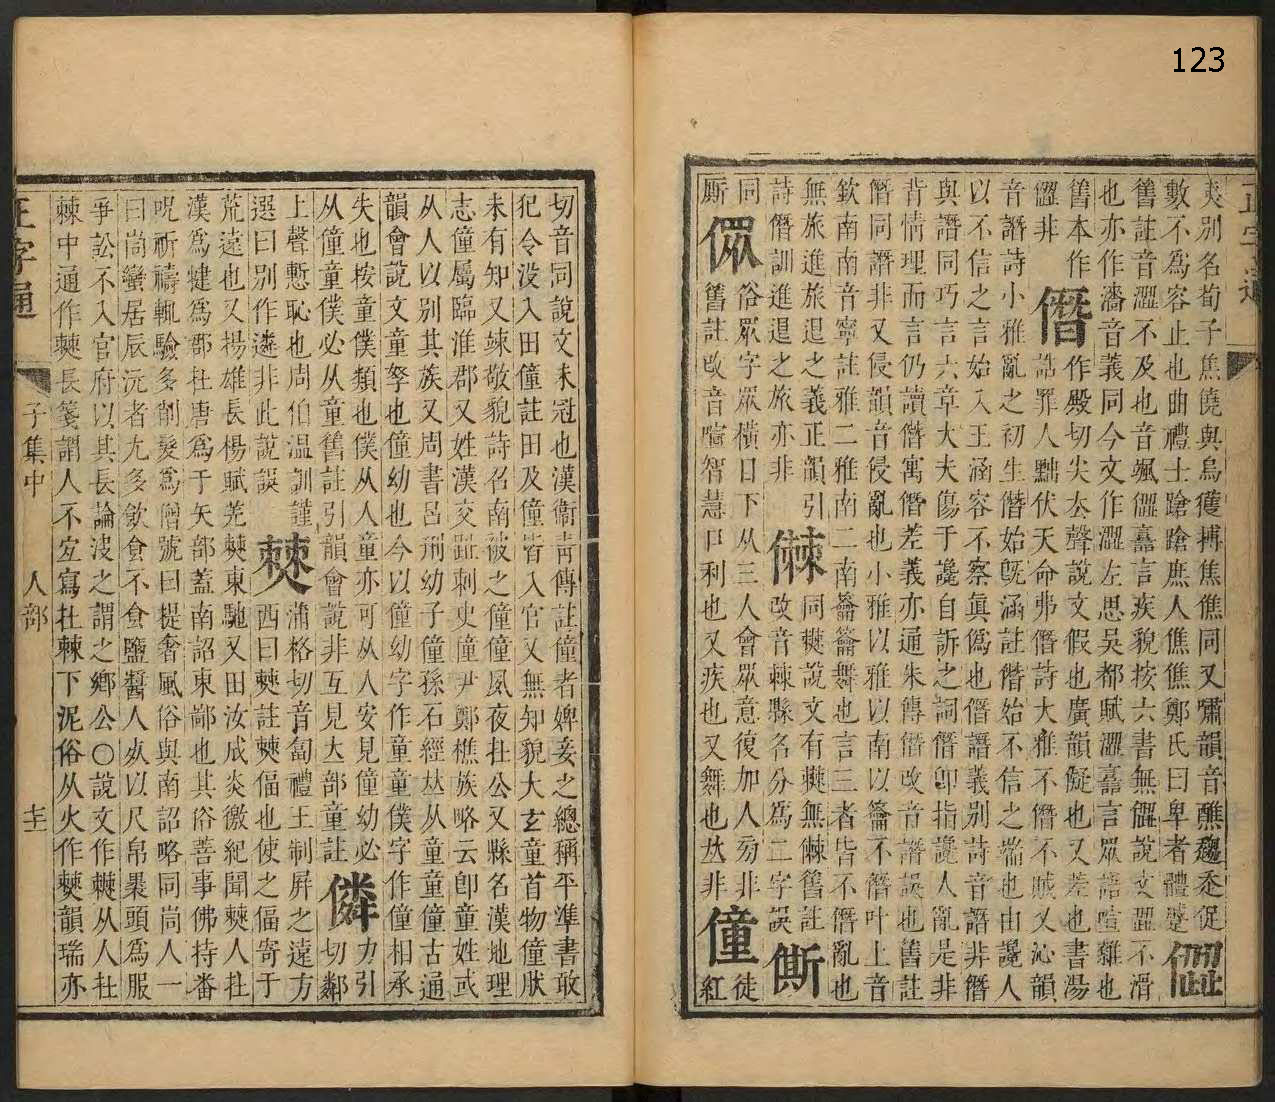 123
正字通
夷別名荀子焦僥與烏獲搏焦僬同又嘯韻音醮趨走促
數不爲容止也曲禮士蹌蹌庶人僬僬鄭氏曰卑者體蹙
儮
舊註音澀不及也音颯儮譶言疾貌按六書無儮說文澀不滑
也亦作濇音義同今文作澀左思吳都賦澀譶言眾語喧雜也
舊本作儮非
僭
作殿切尖去聲說文假也廣韻儗也又差也書湯誥罪人黜伏天命弗僭詩大雅不僭不賊又沁韻
音譖詩小雅亂之初生僭始旣涵註僭始不信之端也由讒人
以不信之言始入王涵容不察眞僞也僭譖義別詩音譖非僭
與譖同巧言六章大夫傷于讒自訴之詞僭卽指讒人亂是非
背情理而言仍讀僭寓僭差義亦通朱傳僭改音譖誤也舊註
僭同譖非又侵韻音侵亂也小雅以雅以南以籥不僭叶上音
欽南南音寧註雅二雅南二南籥籥舞也言三者皆不僭亂也
無旅進旅退之義正韻引
詩僭訓進退之旅亦非
㒖
同僰說文有僰無㒖舊註改音棘縣名分爲二字誤
㒋
同厮
僁
俗眾字眾橫目下从三人會眾意復加人旁非
舊註改音喧智慧口利也又疾也又舞也𠀤非
僮
徒紅
切音同說文未冠也漢衞靑傳註僮者婢妾之總稱平準書敢
犯令没入田僮註田及僮皆入官又無知貌大玄童首物僮肰
未有知又竦敬貌詩召南被之僮僮夙夜杜公又縣名漢地理
志僮屬臨淮郡又姓漢交趾刺史僮尹鄭樵族略云卽童姓或
从人以別其族又周書呂刑幼子僮孫石經𠀤从童童僮古通
韻會說文童孥也僮幼也今以僮幼字作童童僕字作僮相承
失也按童僕類也僕从人童亦可从人安見僮幼必
从僮童僕必从童舊註引韻會說非互見大部童註
僯
力引切鄰
上聲慙恥也周伯温訓謹
選曰別作遴非此說誤
僰
蒲格切音匐禮王制屏之遠方
西曰僰註僰偪也使之偪寄于
荒遠也又揚雄長楊賦羌僰東馳又田汝成炎徼紀聞僰人杜
漢爲犍爲郡杜唐爲于矢部蓋南詔東鄙也其俗善事佛持番
呪祈禱輒驗多削髮爲僧號曰提奢風俗與南詔略同尚人一
曰尚蠻居辰沅者尤多飲食不食鹽醬人死以尺帛裹頭爲服
爭訟不入官府以其長論決之謂之鄉公〇說文作僰从人杜
棘中通作僰長箋謂人不宐寫杜棘下泥俗从火作僰韻瑞亦
正字通
子集中
人部